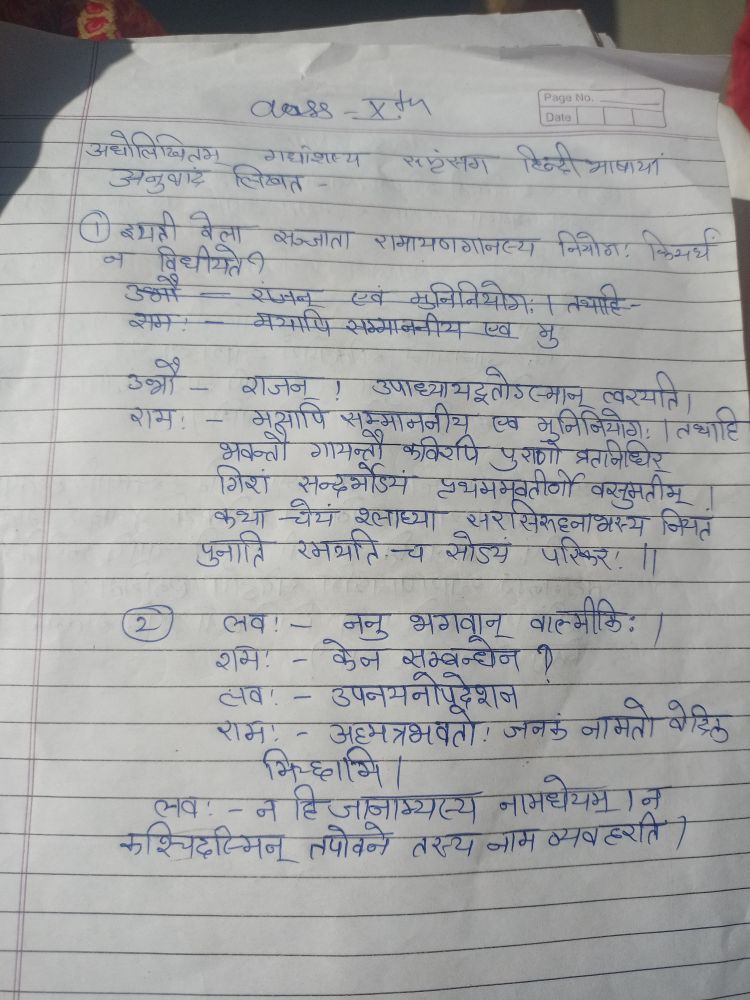 class - Xth
Page No.
Date
अधोलिखितम गद्यांशस्य सप्रंसग हिन्दी भाषायां
अनुवादं लिखत -
① इयती वेला सञ्जाता रामायणगानस्य नियोगः किमर्थ
न विधीयते?
उभौ - रांजन् एवं मुनिनियोगः। तथाहि-
रामः - मयापि सम्माननीय एव मु
उभौ - राजन् ! उपाध्यायदूतोऽस्मान् त्वरयति।
रामः - मयापि सम्माननीय एव मुनिनियोगः। तथाहि
भवन्तौ गायन्तौ कविरपि पुराणो व्रतनिधिर्
गिरां सन्दर्भोऽयं प्रथममवतीर्णो वसुमतीम् ।
कथा चेयं श्लाध्या सरसिरुहनाभस्य नियतं
पुनाति रमयति च सोऽयं परिकरः ॥
② लवः - ननु भगवान् वाल्मीकिः।
रामः - केन सम्बन्धेन ?
लवः - उपनयनोपदेशेन
रामः - अहमत्रभवतोः जनकं नामतो वेदितु
मिच्छामि।
लवः - न हि जानाम्यस्य नामधेयम्। न
कश्चिदस्मिन् तपोवने तस्य नाम व्यवहरति।